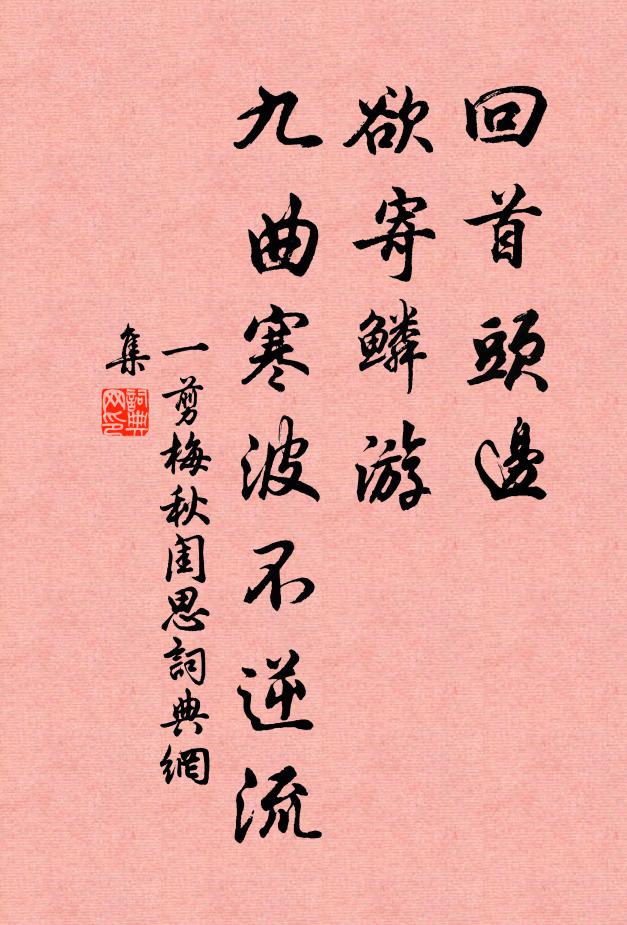 回首頭邊
欲寄鱗游
九曲寒波不逆流
一剪梅秋閨思詞典網
集
詞典
网印